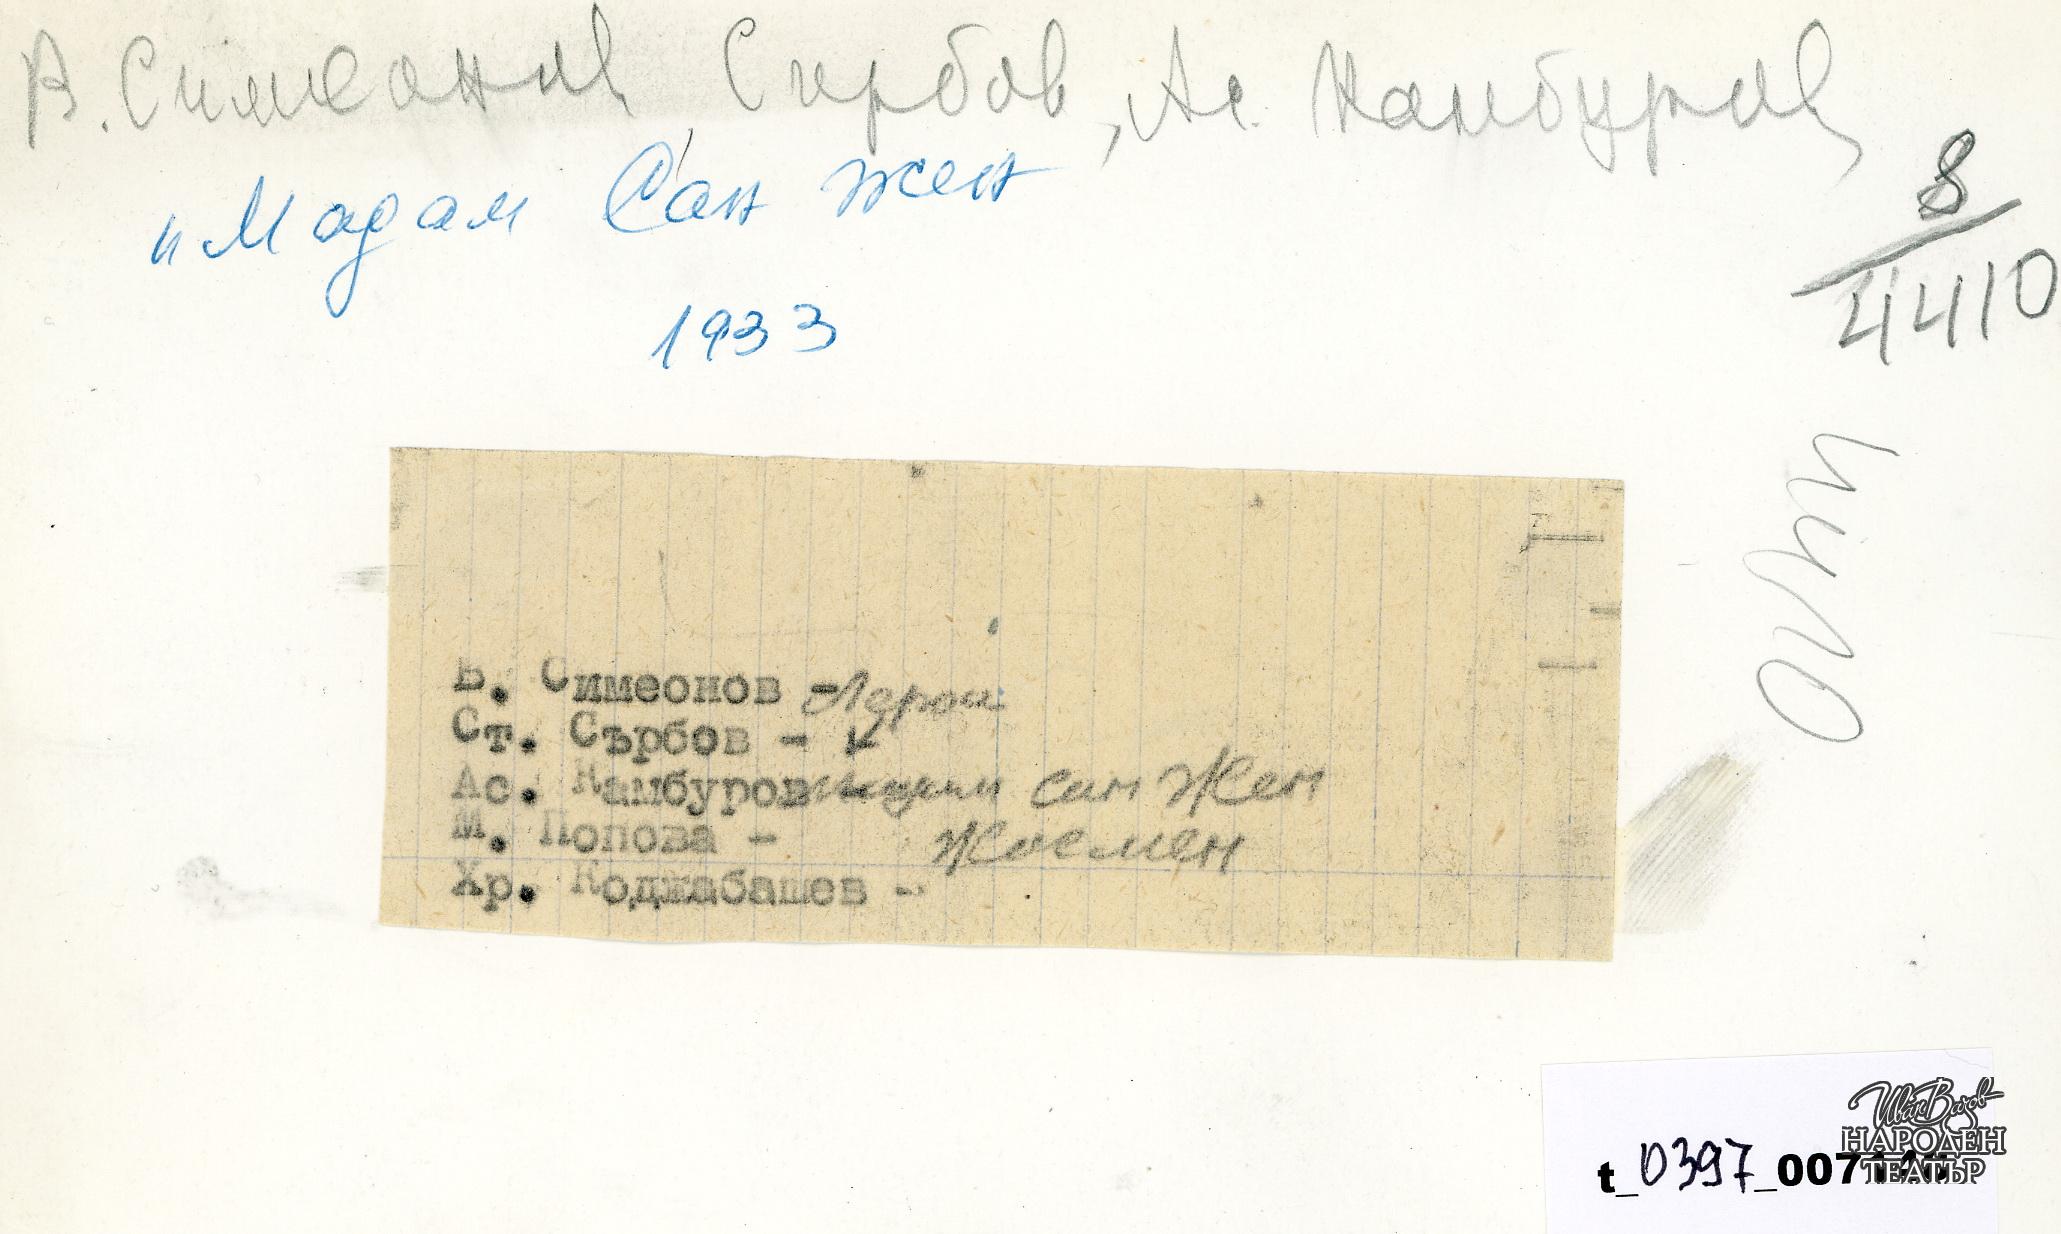 В. Симеонов, Сърбов, Ас. Камбуров
"Мадам Сан жен
1933
8
4410
4410
В. Симеонов -
Ст. Сърбов -
Ас. Камбуров сан Жен
М. Попова - Жосмен
Хр. Коджабашев -
Иван Вазов
НАРОДЕН
ТЕАТЪР
t_0397_007